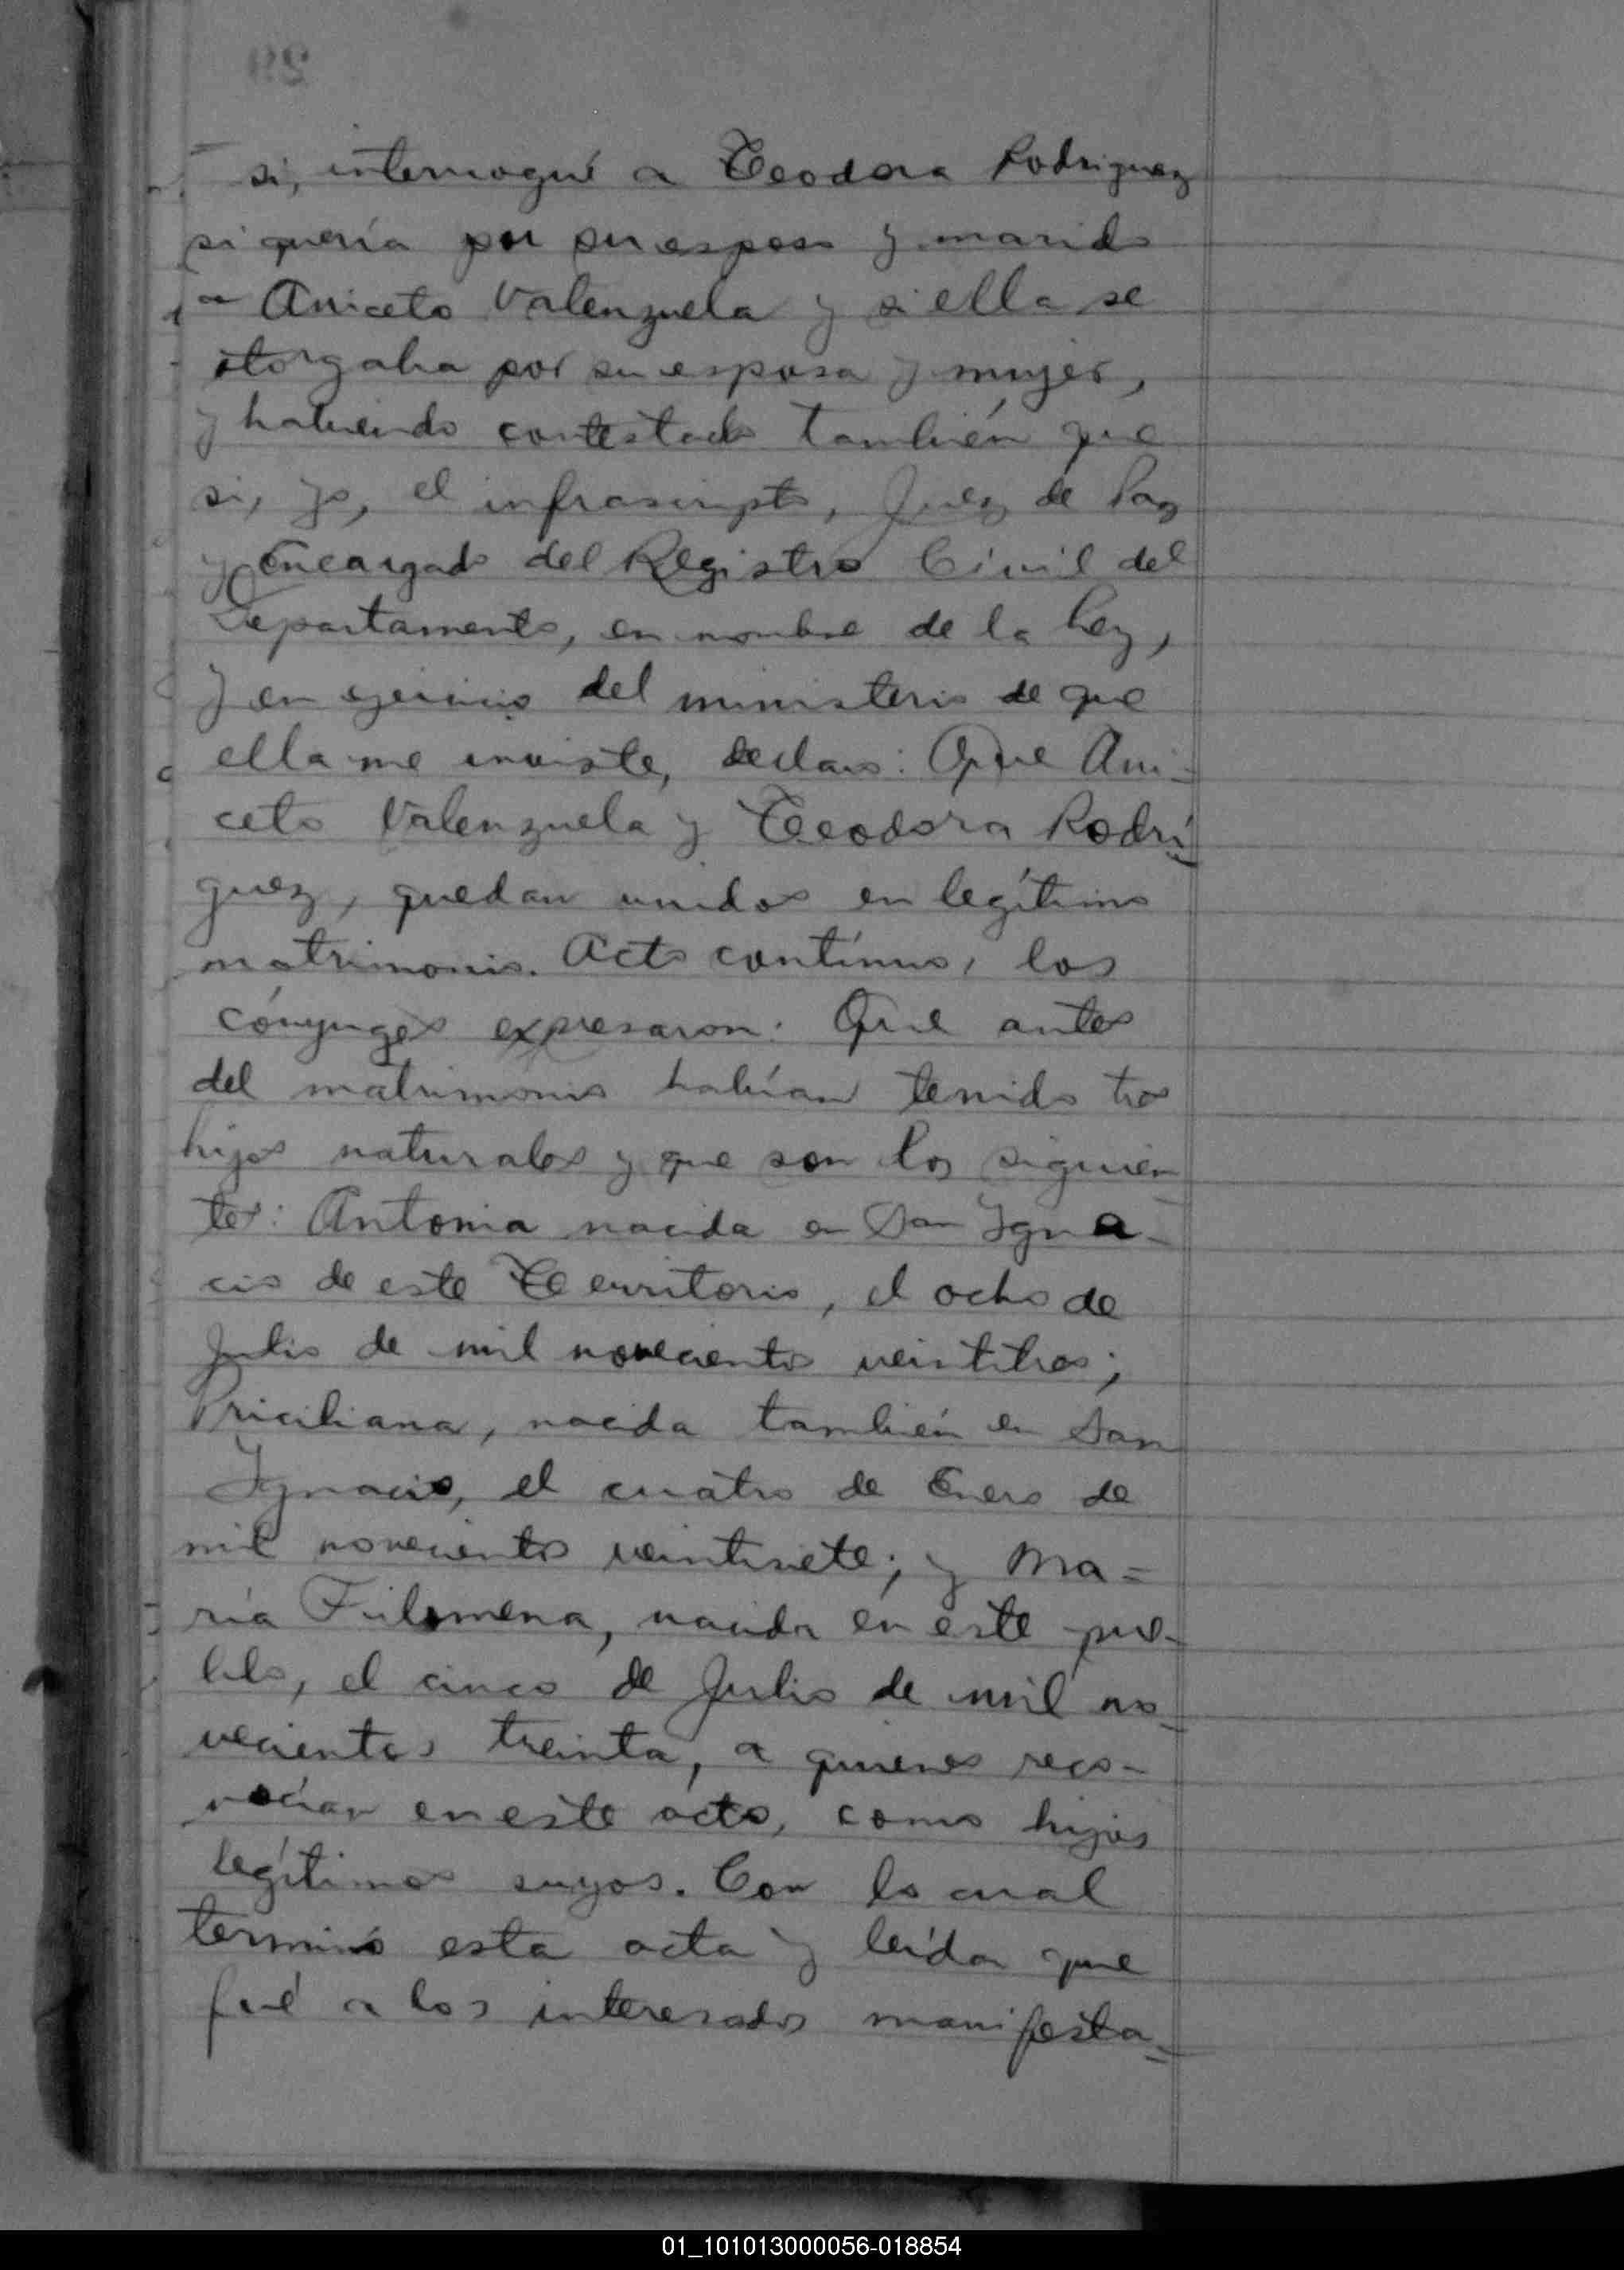 29
si, interrogué a Teodora Rodriguez
si quería por su esposo y marido
a Aniceto Valenzuela y si ella se
otorgaba por su esposa y mujer,
y habiendo contestado también que
si, yo, el infrascripto, Juez de Paz
y Encargado del Registro Civil del
Departamento, en nombre de la Ley,
y en ejercicio del ministerio de que
ella me inviste, declaro: Que Ani-
ceto Valenzuela y Teodora Rodrí-
guez, quedan unidos en legítimo
matrimonio. Acto contínuo, los
cónyuges expresaron: Que antes
del matrimonio habían tenido tres
hijos naturales y que son los siguien-
tes: Antonia nacida en San Igna-
cio de este Territorio, el ocho de
Julio de mil novecientos veintitres;
Priciliana, nacida también en San
Ignacio, el cuatro de Enero de
mil novecientos veintisiete; y Ma=
ría Filomena, nacida en este pue-
blo, el cinco de Julio de mil no-
vecientos treinta, a quienes reco-
nocían en este acto, como hijos
legítimos suyos. Con lo cual
terminó esta acta y leída que
fué a los interesados manifesta-
01_101013000056-018854